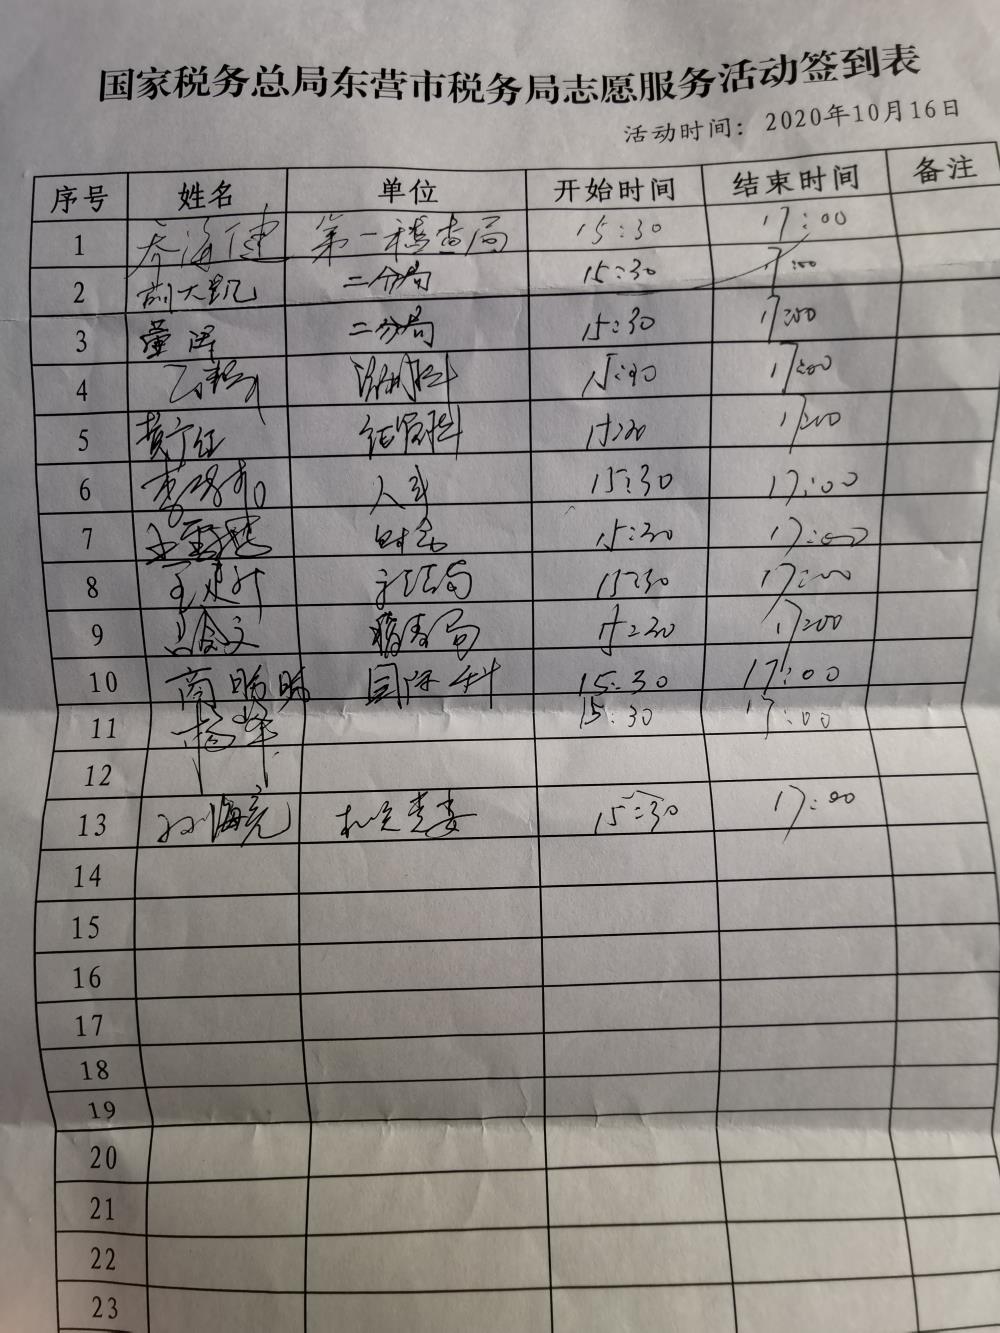 国家税务总局东营市税务局志愿服务活动签到表
活动时间：2020年10月16日
序号 姓名 单位 开始时间 结束时间 备注
1 齐海健 第一稽查局 15:30 17:00
2 刘大凯 二分局 15:30 17:00
3 董 二分局 15:30 17:00
4 17:00
5 17:00
6 人事 15:30 17:00
7 财务 15:30 17:00
8 15:30 17:00
9 稽查局 15:30 17:00
10 商鹏鹏 国际科 15:30 17:00
11 杨华 15:30 17:00
12
13 孙海亮 机关党委 15:30 17:00
14
15
16
17
18
19
20
21
22
23